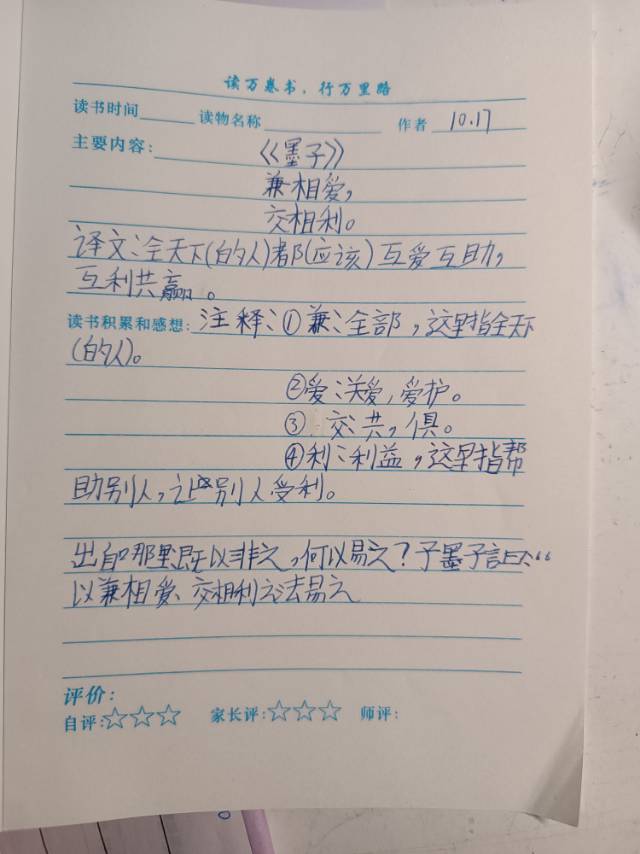 读万卷书，行万里路
读书时间 读物名称 作者 10.17
主要内容：《墨子》
兼相爱，
交相利。
译文：全天下(的人)都(应该)互爱互助，
互利共赢。
读书积累和感想：注释：①兼：全部，这里指全天下
(的人)。
②爱：关爱，爱护。
③交：共，俱。
④利：利益，这里指帮
助别人，让别人受利。
出自哪里既以非之，何以易之？子墨子言曰：“
以兼相爱、交相利之法易之
评价：
自评：☆☆☆ 家长评：☆☆☆ 师评：